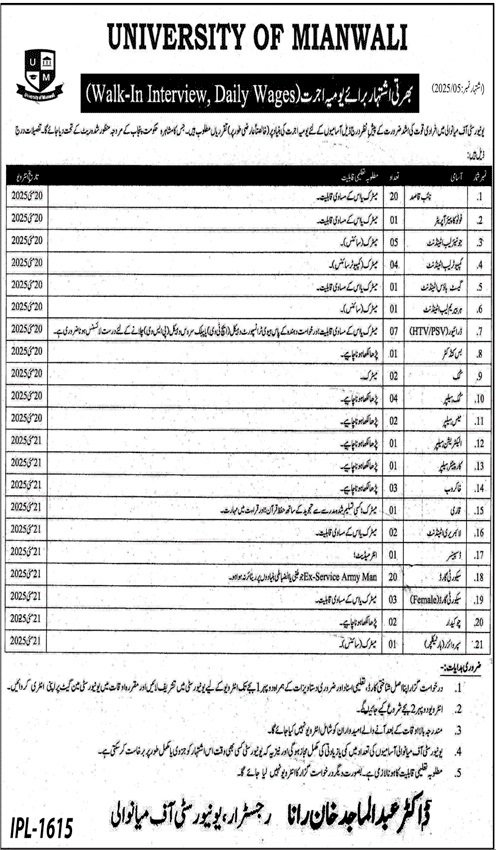 UNIVERSITY OF MIANWALI
U M
University of Mianwali
(اشتہار نمبر: 2025/05)
بھرتی اشتہار برائے یومیہ اجرت (Walk-In Interview, Daily Wages)
یونیورسٹی آف میانوالی میں افرادی قوت کی اشد ضرورت کے پیش نظر درج ذیل آسامیوں کے لئے یومیہ اجرت کی بنیاد پر (خالصتاً عارضی طور پر) تقرریاں مطلوب ہیں۔ جس کا مشاہرہ حکومت پنجاب کے مروجہ منظور شدہ ریٹ کے تحت دیا جائے گا۔ تفصیلات درج
ذیل ہیں۔
نمبر شمار آسامی تعداد مطلوبہ تعلیمی قابلیت تاریخ انٹرویو
1. نائب قاصد 20 میٹرک یا اس کے مساوی قابلیت۔ 20 مئی 2025
2. فوٹو کاپیئر آپریٹر 01 میٹرک یا اس کے مساوی قابلیت۔ 20 مئی 2025
3. جونیئر لیب اٹینڈنٹ 05 میٹرک (سائنس)۔ 20 مئی 2025
4. کمپیوٹر لیب اٹینڈنٹ 04 میٹرک (کمپیوٹر سائنس)۔ 20 مئی 2025
5. گیسٹ ہاؤس اٹینڈنٹ 01 میٹرک یا اس کے مساوی قابلیت۔ 20 مئی 2025
6. ہربیریم لیب اٹینڈنٹ 01 میٹرک (سائنس)۔ 20 مئی 2025
7. ڈرائیور (HTV/PSV) 07 میٹرک یا اس کے مساوی قابلیت اور درخواست دہندہ کے پاس ہیوی ٹرانسپورٹ وہیکل (ایچ ٹی وی) / پبلک سروس وہیکل (پی ایس وی) چلانے کے لئے درست لائسنس ہونا ضروری ہے۔ 20 مئی 2025
8. بس کنڈکٹر 01 پڑھا لکھا ہونا چاہیے۔ 20 مئی 2025
9. کک 02 میٹرک۔ 20 مئی 2025
10. کک ہیلپر 04 پڑھا لکھا ہونا چاہیے۔ 20 مئی 2025
11. میس ہیلپر 02 پڑھا لکھا ہونا چاہیے۔ 20 مئی 2025
12. الیکٹریشن ہیلپر 01 پڑھا لکھا ہونا چاہیے۔ 21 مئی 2025
13. کارپینٹر ہیلپر 01 پڑھا لکھا ہونا چاہیے۔ 21 مئی 2025
14. خاکروب 03 پڑھا لکھا ہونا چاہیے۔ 21 مئی 2025
15. قاری 01 میٹرک / کسی تسلیم شدہ مدرسے سے تجوید کے ساتھ حفظ قرآن اور قراءت میں مہارت۔ 21 مئی 2025
16. لائبریری اٹینڈنٹ 02 میٹرک یا اس کے مساوی قابلیت۔ 21 مئی 2025
17. ڈسپنسر 01 انٹرمیڈیٹ۔ 21 مئی 2025
18. سیکورٹی گارڈ 20 Ex-Service Army Man جو طبی یا انضباطی بنیادوں پر ریٹائرڈ نہ ہوا ہو۔ 21 مئی 2025
19. سیکورٹی گارڈ (Female) 03 میٹرک یا اس کے مساوی قابلیت۔ 21 مئی 2025
20. چوکیدار 02 پڑھا لکھا ہونا چاہیے۔ 21 مئی 2025
21. سپروائزر 01 میٹرک (سائنس)۔ 21 مئی 2025
ضروری ہدایات:۔
1. درخواست گزار اپنا اصل شناختی کارڈ، تعلیمی اسناد اور ضروری دستاویزات کے ہمراہ دوپہر 1 بجے تک انٹرویو کے لیے یونیورسٹی میں تشریف لائیں اور مقررہ اوقات میں یونیورسٹی مین گیٹ پر اپنی انٹری کروائیں۔
2. انٹرویو دوپہر 2 بجے شروع کیے جائیں گے۔
3. مندرجہ بالا اوقات کے بعد آنے والے امیدواران کو شامل انٹرویو نہیں کیا جائے گا۔
4. یونیورسٹی آف میانوالی آسامیوں کی تعداد میں کمی یا زیادتی کی مکمل مجاز ہوگی اور نیز یہ کہ یونیورسٹی کسی بھی وقت اس اشتہار کو جزوی یا مکمل طور پر برخاست کر سکتی ہے۔
5. مطلوبہ تعلیمی قابلیت کا ہونا لازمی ہے۔ بصورت دیگر درخواست گزار کا انٹرویو نہیں لیا جائے گا۔
ڈاکٹر عبدالماجد خان رانا رجسٹرار، یونیورسٹی آف میانوالی
IPL-1615